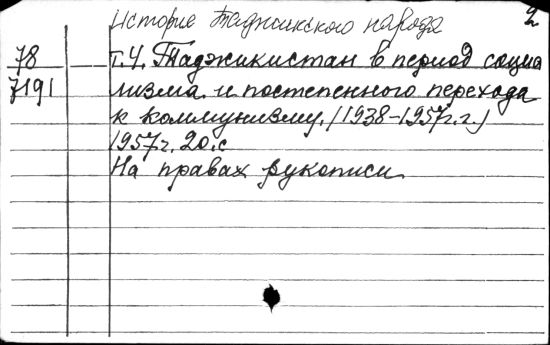 История Таджикского народа 2
78 т.Ч. Таджикистан в период социа
7191 лизма и постепенного перехода
к коммунизму. (1938-1957г.г.)
1957г. 20.с
На правах рукописи